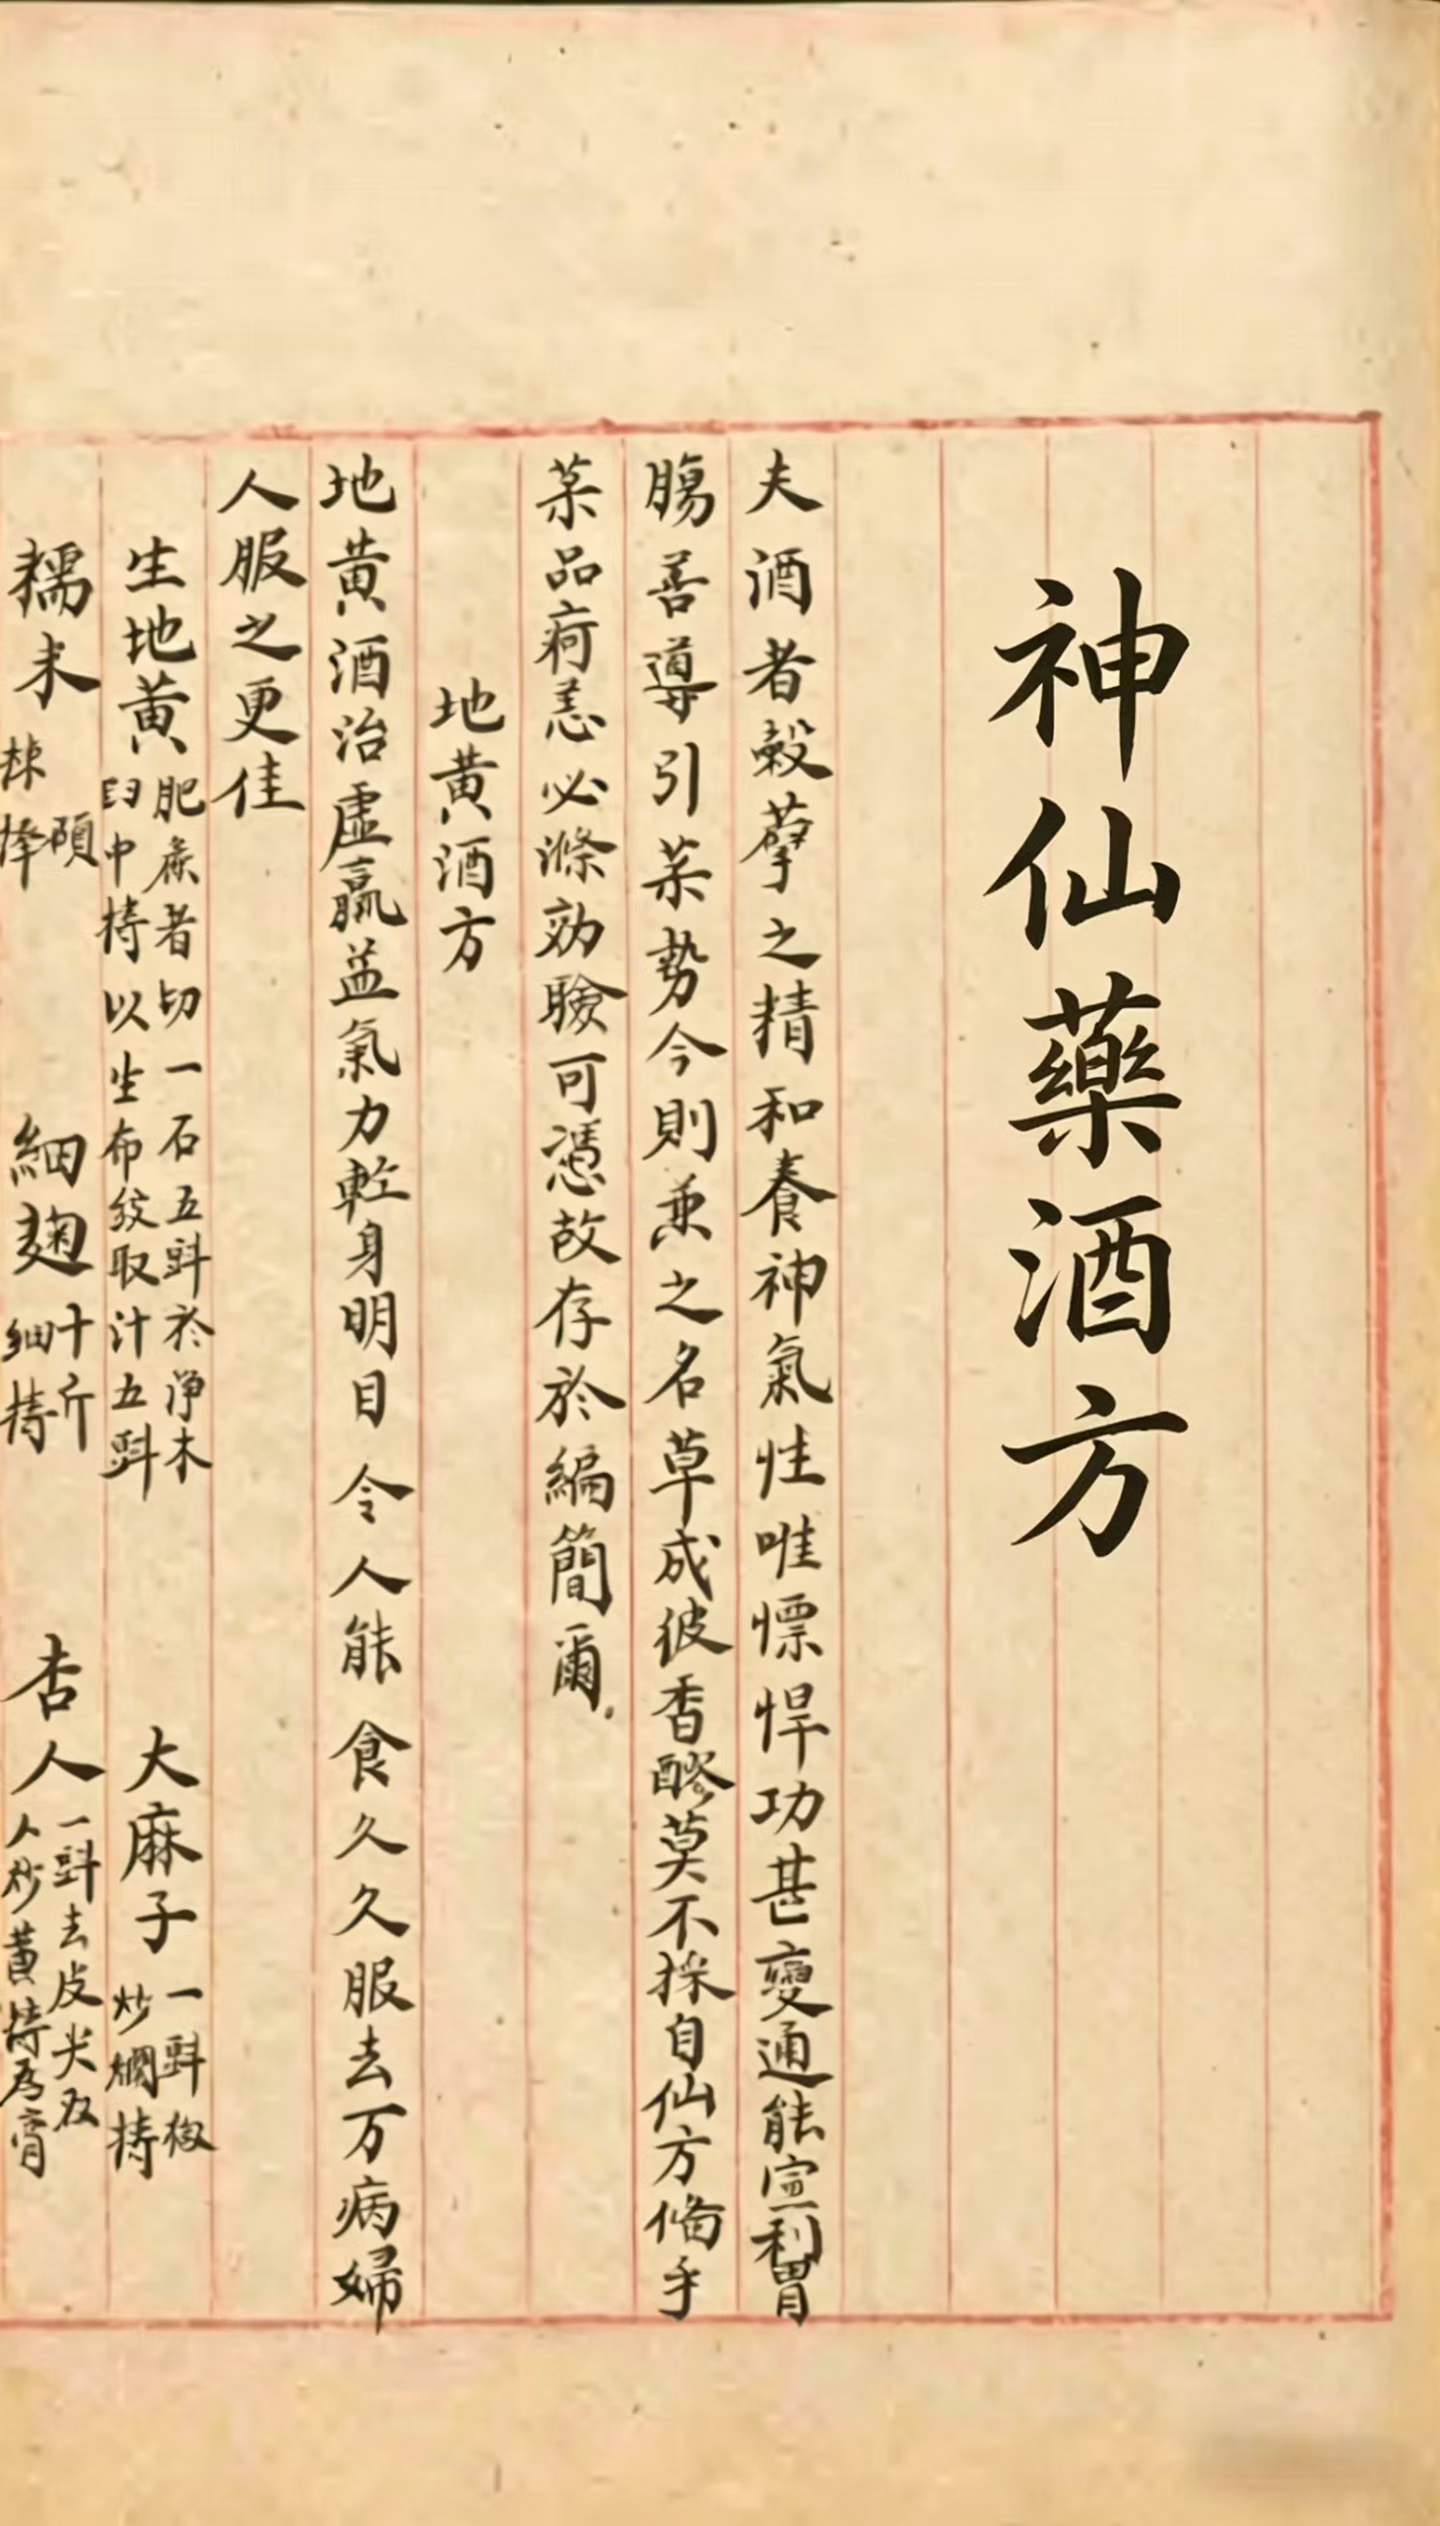 神仙藥酒方
夫酒者穀孽之精和養神氣性唯慓悍功甚變通能宣利胃
腸善導引菜勢今則兼之名草成彼香醪莫不採自仙方備乎
菜品痾恙必滌効驗可憑故存於編簡爾
地黄酒方
地黄酒治虚羸益氣力輕身明目令人能食久久服去万病婦
人服之更佳
生地黄 肥者切一石五㪷於净木
臼中擣以生布絞取汁五㪷
大麻子 一㪷
炒爛擣
糯米
細麹 十斤
細擣
杏人 一㪷去皮尖双
人炒黄擣為膏